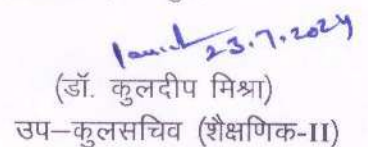 23.7.2024
(डॉ. कुलदीप मिश्रा)
उप–कुलसचिव (शैक्षणिक-II)